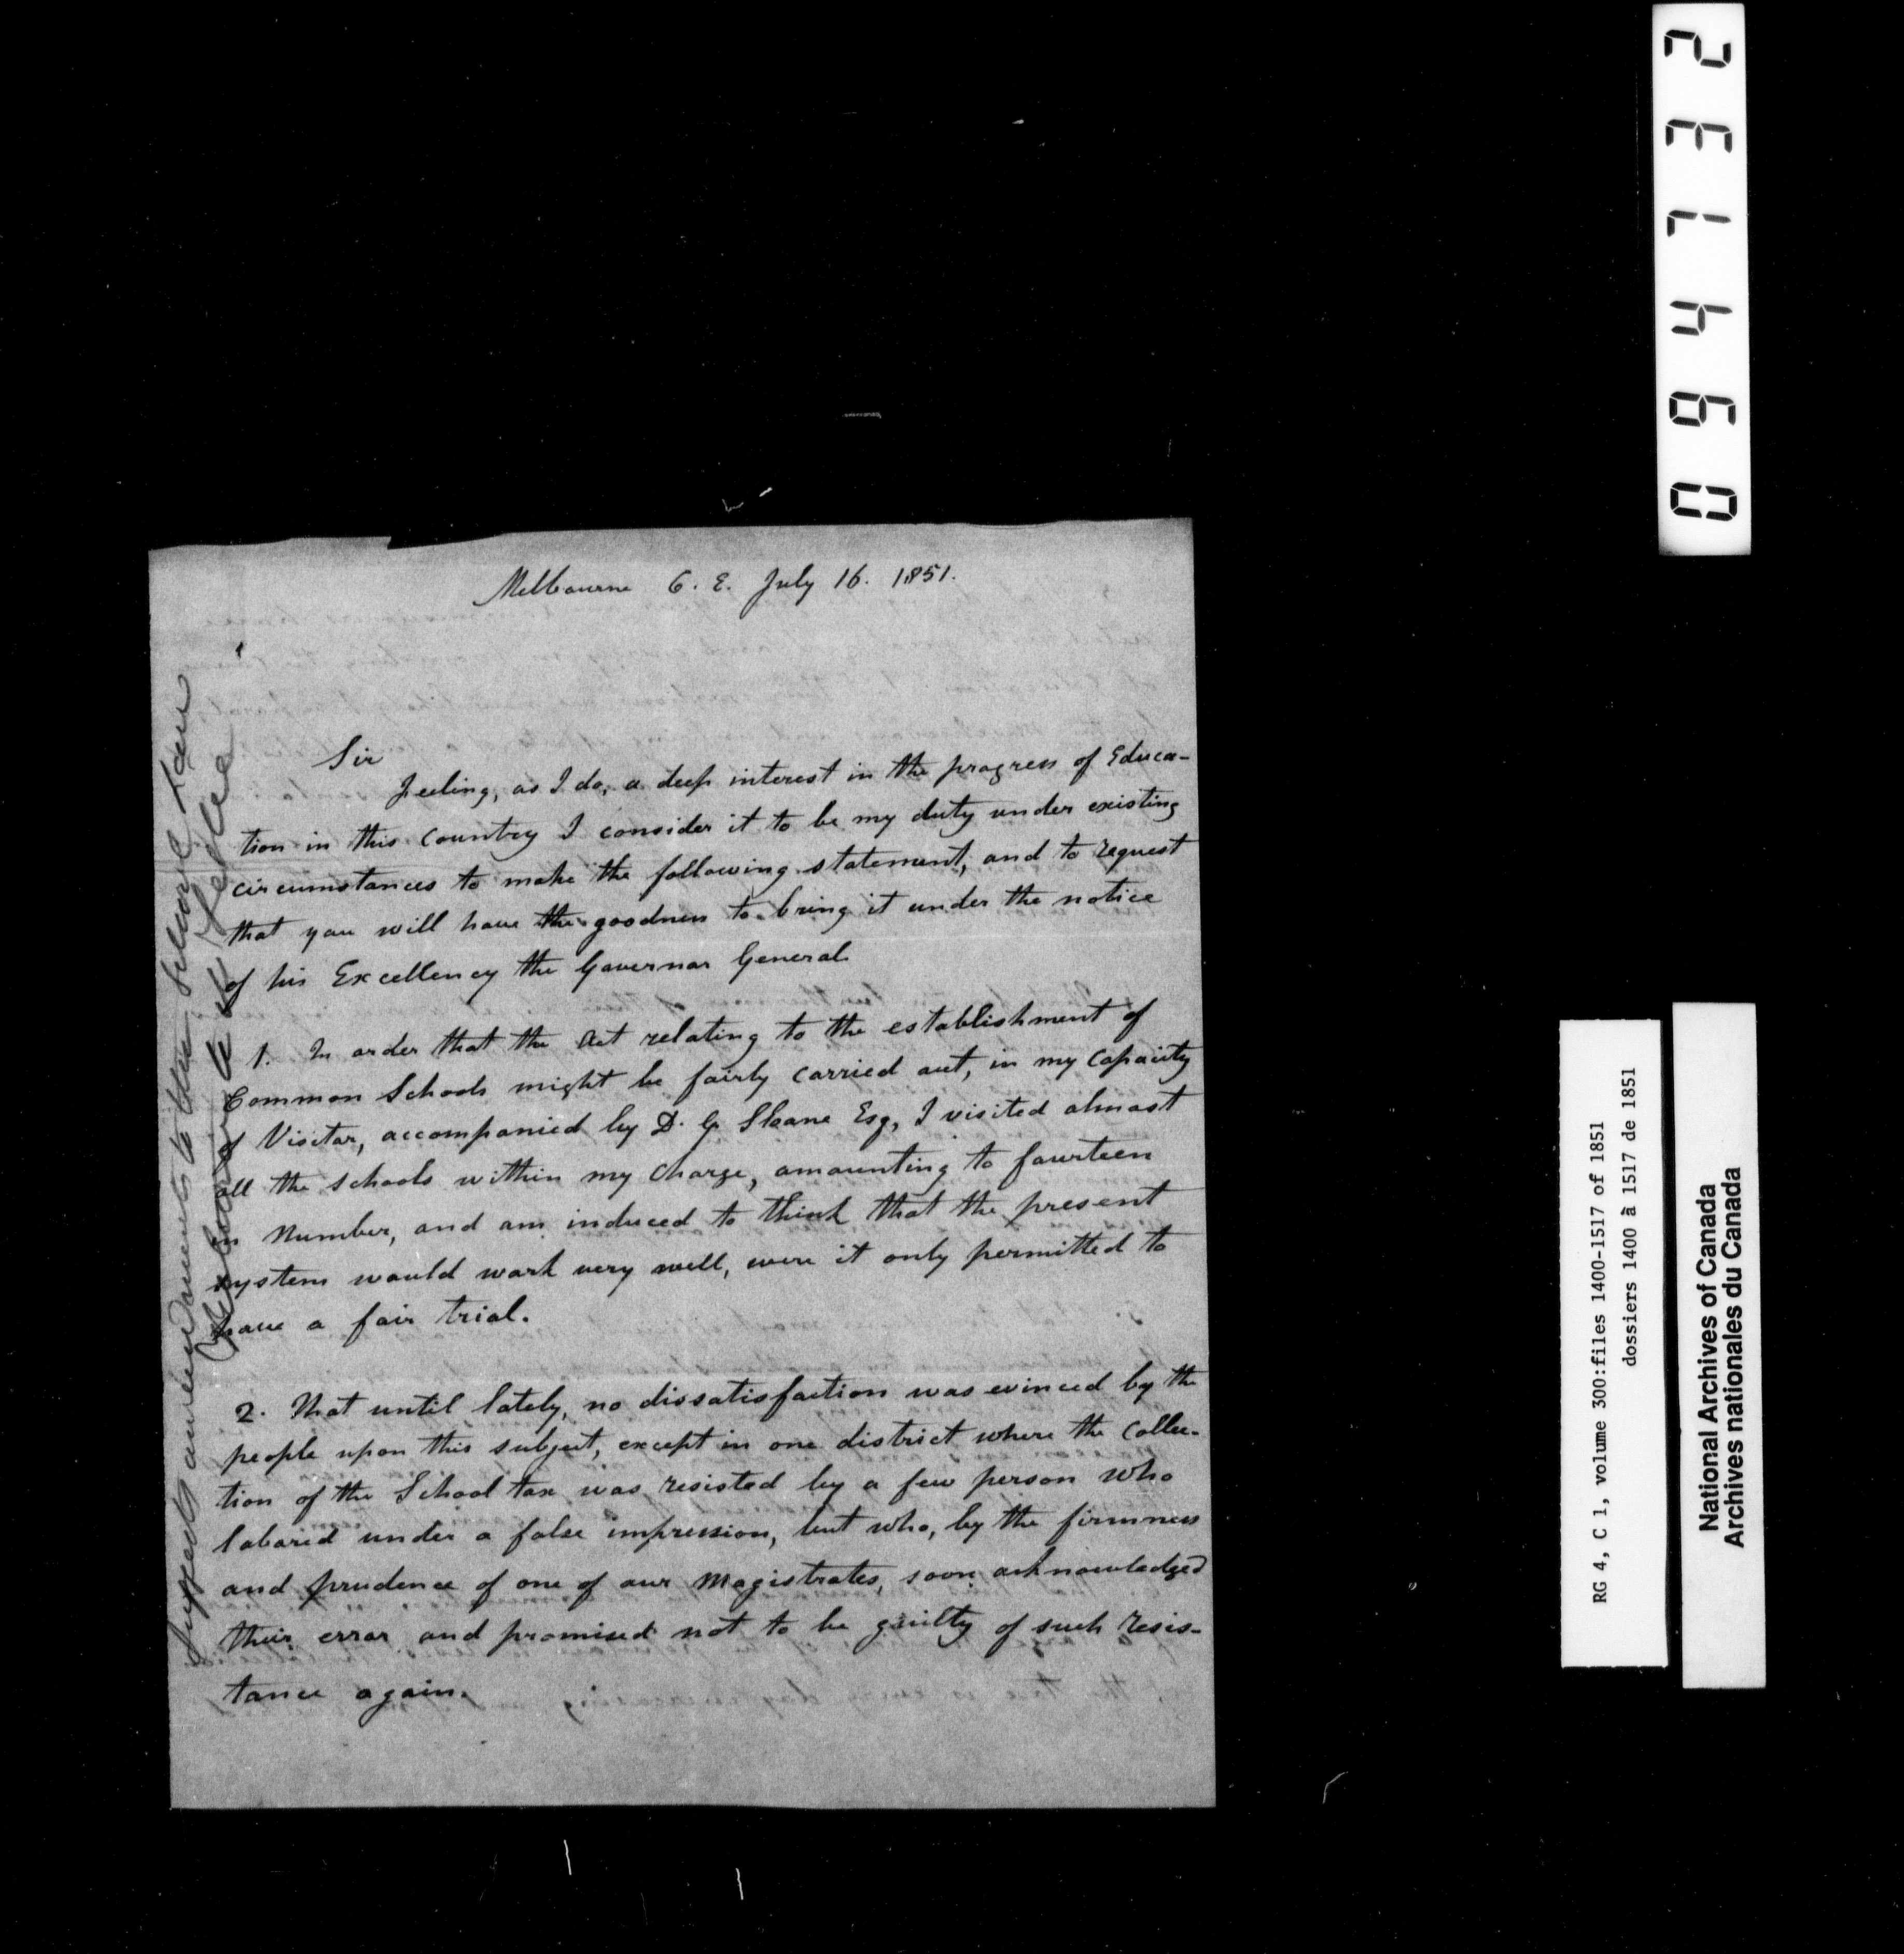 Melbourne C. E. July 16. 1851.
Sir
Feeling, as I do, a deep interest in the progress of Educa-
tion in this country I consider it to be my duty under existing
circumstances to make the following statement, and to request
that you will have the goodness to bring it under the notice
of his Excellency the Governor General.
1. In order that the Act relating to the establishment of
Common Schools might be fairly carried out, in my capacity
of Visitor, accompanied by D. G Sloane Esq, I visited almost
all the schools within my charge, amounting to fourteen
in number, and am induced to think that the present
system would work very well, were it only permitted to
have a fair trial.
2. That until lately, no dissatisfaction was evinced by the
people upon this subject, except in one district where the collec-
tion of the School tax was resisted by a few person who
labored under a false impression, but who, by the firmness
and prudence of one of our Magistrates, soon acknowledged
their error and promised not to be guilty of such resis-
tance again.
Suggests amendments to the School Law
064132
RG 4, C 1, volume 300:files 1400-1517 of 1851
dossiers 1400 à 1517 de 1851
National Archives of Canada
Archives nationales du Canada